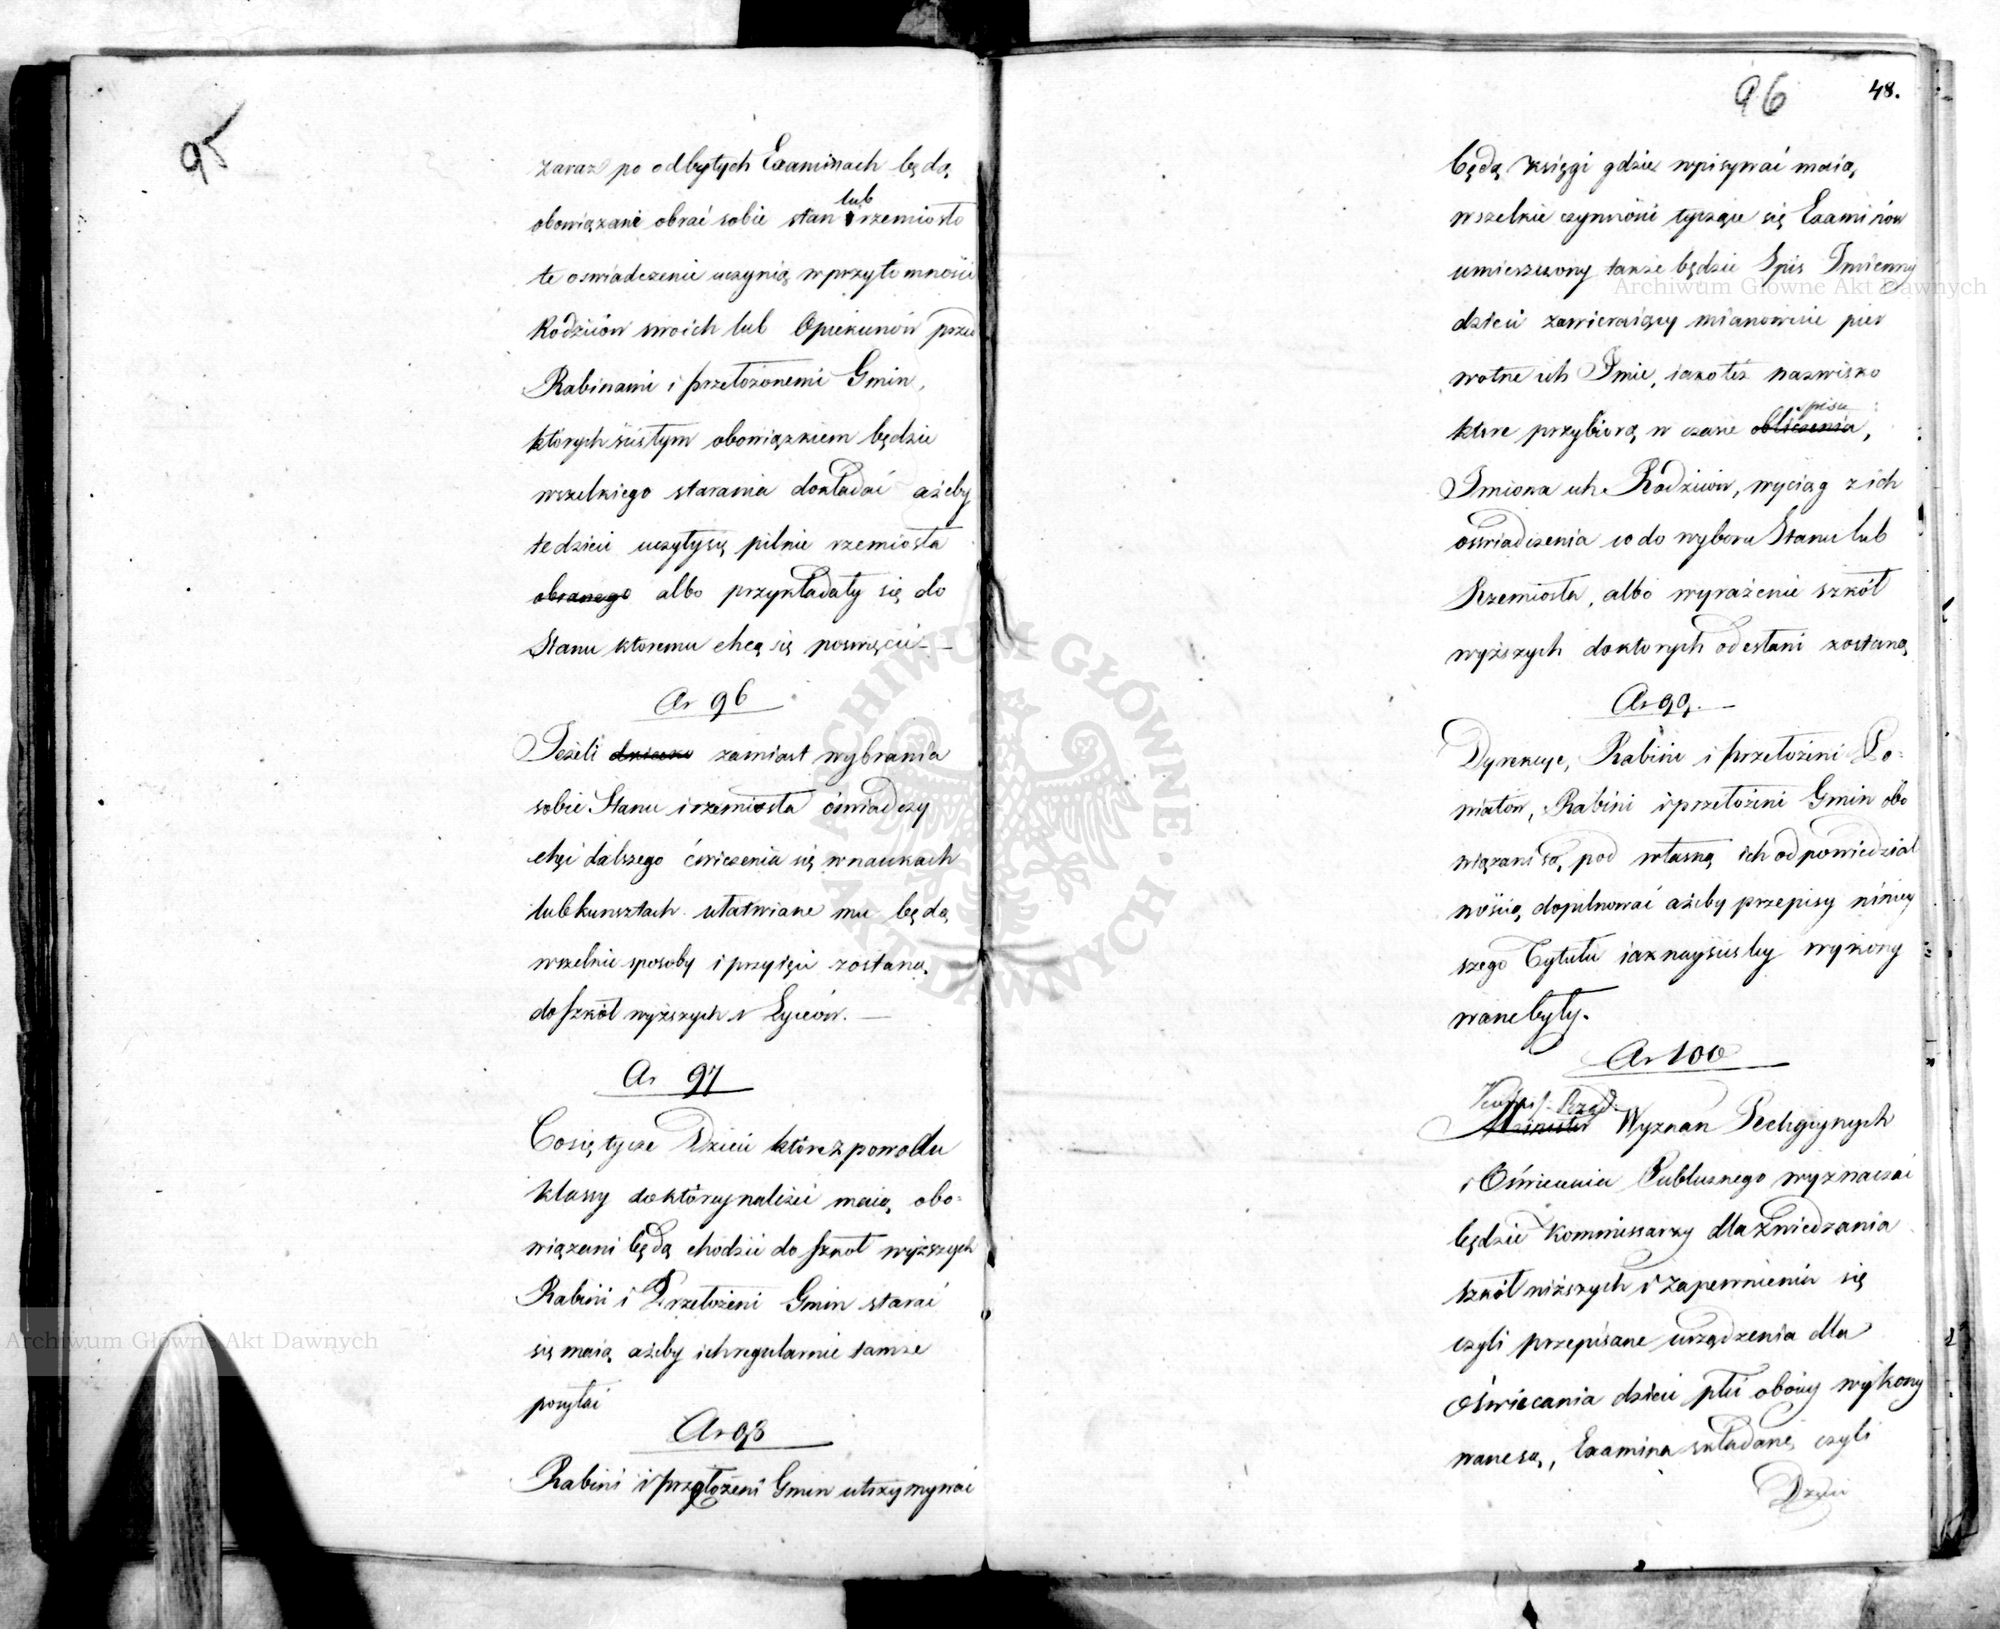 95
zaraz po odbytych Examinach będą
lub
obowiązane obrać sobie stan i rzemiosło
te oswiadczenie uczynią w przytomności
Rodziców swoich lub Opiekunów przed
Rabinami i przełożonemi Gmin,
których scisłym obowiązkiem będzie
wszelkiego starania dokładać ażeby
te dzieci uczyły się pilnie rzemiosła
obranego albo przykładały się do
Stanu ktoremu chcą się poswięcić –
Ar 96
Jeżeli dziecko zamiast wybrania
sobie Stanu i rzemiosła oświadczy
chęć dalszego ćwiczenia się w naukach
lub kunsztach ułatwiane mu będą
wszelkie sposoby i przyięci zostaną
do szkół wyższych i Lyceów. —
Ar 97
Co się tycze Dzieci które z powodu
klassy do któréy należeć maią obo=
wiązani będą chodzić do szkół wyższych
Rabini i Przełożeni Gmin starać
się maią ażeby ich regularnie tamże
posyłać
Ar 98
Rabini i przełożeni Gmin utrzymywać
96
48.
będą księgi gdzie wpisywać maią
wszelkie czynności tyczące się Examinów
umieszczony także będzie Spis Imienny
dzieci zawieraiący mianowicie pier
wotne ich Imie, iako też nazwisko
spisu
które przybiorą w czasie obliczenia,
Imiona ich Rodziców, wyciąg z ich
oswiadczenia co do wyboru Stanu lub
Rzemiosła, albo wyrażenie szkół
wyższych do ktorych odesłani zostaną
Ar 99. —
Dyrekcye, Rabini i przełożeni Po=
wiatów, Rabini i przełożeni Gmin obo
wiązani są pod własną ich odpowiedzial
nością dopilnować ażeby przepisy niniey
szego Tytułu iak nayscisley wykony
wane były.
Ar 100
Kommis. Rząd.
Minister Wyznań Religiynych
i Oświecenia Publicznego wyznaczać
będzie Kommissarzy dla zwiedzania
szkół niższych i zapewnienia się
czyli przepisane urządzenia dla
oświecania dzieci płci obóiey wykony
wane są, Examina składane, czyli
Dzieci
Archiwum Główne Akt Dawnych
Archiwum Główne Akt Dawnych
ARCHIWUM GŁÓWNE • AKT DAWNYCH •